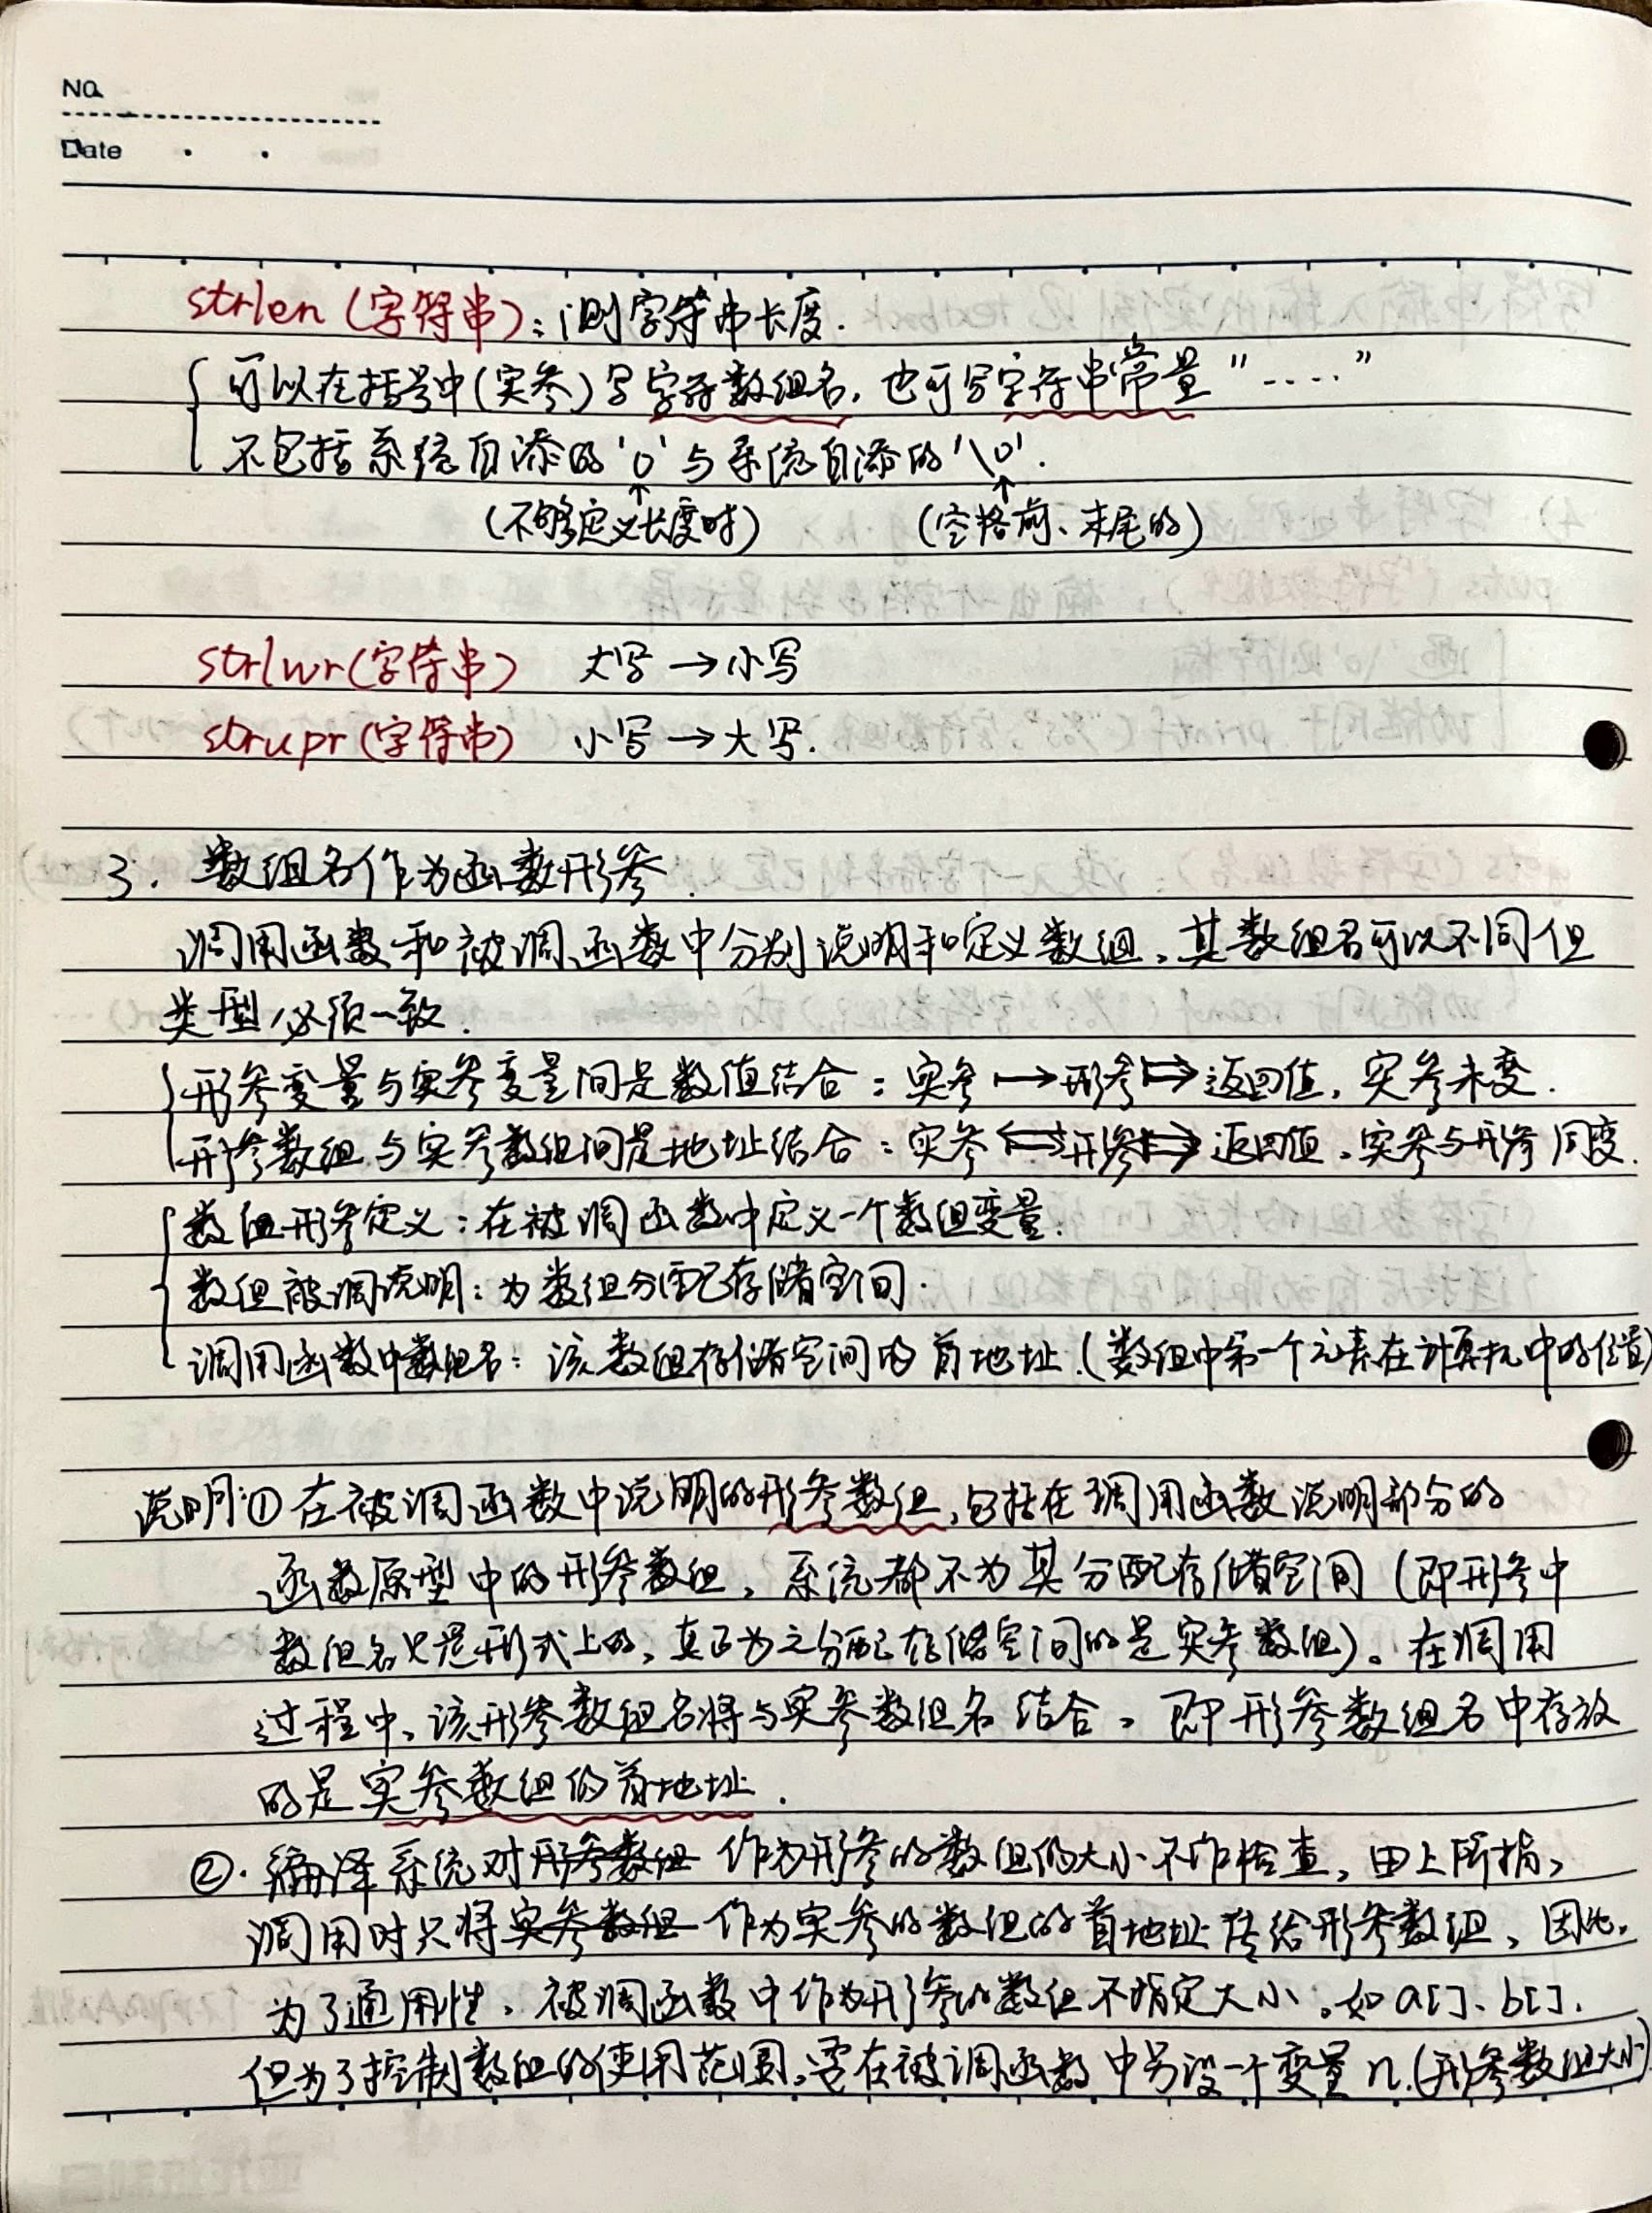 No.
Date
strlen (字符串): 测字符串长度.
可以在括号中(实参)写字符数组名, 也可写字符串常量 "....."
不包括系统自添的'0'与系统自添的'\0'.
(不够定义长度时) (空格前、末尾的)
strlwr(字符串) 大写→小写
strupr(字符串) 小写→大写.
3. 数组名作为函数形参.
调用函数和被调函数中分别说明和定义数组, 其数组名可以不同但
类型必须一致.
形参变量与实参变量间是数值结合: 实参→形参⇒返回值, 实参未变.
形参数组与实参数组间是地址结合: 实参⟺形参⇒返回值, 实参与形参同变.
数组形参定义: 在被调函数中定义一个数组变量.
数组被调说明: 为数组分配存储空间.
调用函数中数组名: 该数组存储空间的首地址.(数组中第一个元素在计算机中的位置)
说明:①在被调函数中说明的形参数组, 包括在调用函数说明部分的
函数原型中的形参数组, 系统都不为其分配存储空间 (即形参中
数组名只是形式上的, 真正为之分配存储空间的是实参数组)。在调用
过程中, 该形参数组名将与实参数组名结合, 即形参数组名中存放
的是实参数组的首地址.
②. 编译系统对形参数组 作为形参的数组的大小不作检查, 由上所指,
调用时只将实参数组 作为实参的数组的首地址传给形参数组, 因此,
为了通用性, 被调函数中作为形参的数组不指定大小, 如 a[]、b[].
但为了控制数组的使用范围, 要在被调函数中另设一个变量 n.(形参数组大小)